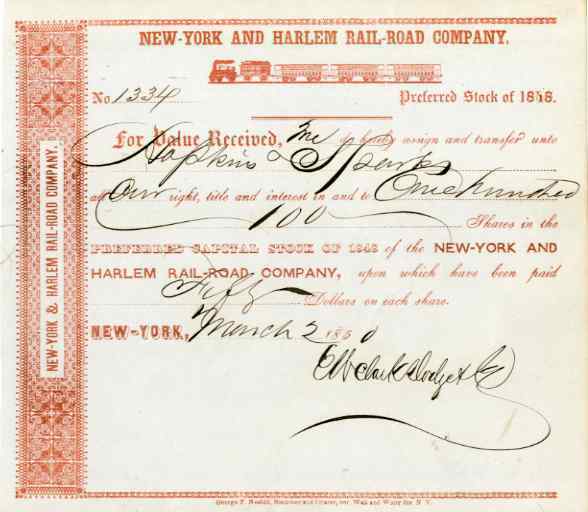 NEW-YORK AND HARLEM RAIL-ROAD COMPANY.
No. 1334 Preferred Stock of 1848.
For Value Received, We do hereby assign and transfer unto
Hopkins & Sparks
all our right, title and interest in and to One Hundred
100 Shares in the
PREFERRED CAPITAL STOCK OF 1848 of the NEW-YORK AND
HARLEM RAIL-ROAD COMPANY, upon which have been paid
Fifty Dollars on each share.
NEW-YORK, March 2 1850
E W Clark Dodge & Co
NEW-YORK & HARLEM RAIL-ROAD COMPANY.
George F. Nesbitt, Stationer and Printer, cor. Wall and Water Sts. N.Y.